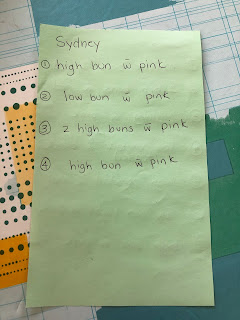 Sydney
① high bun w̄ pink
② low bun w̄ pink
③ 2 high buns w̄ pink
④ high bun w̄ pink